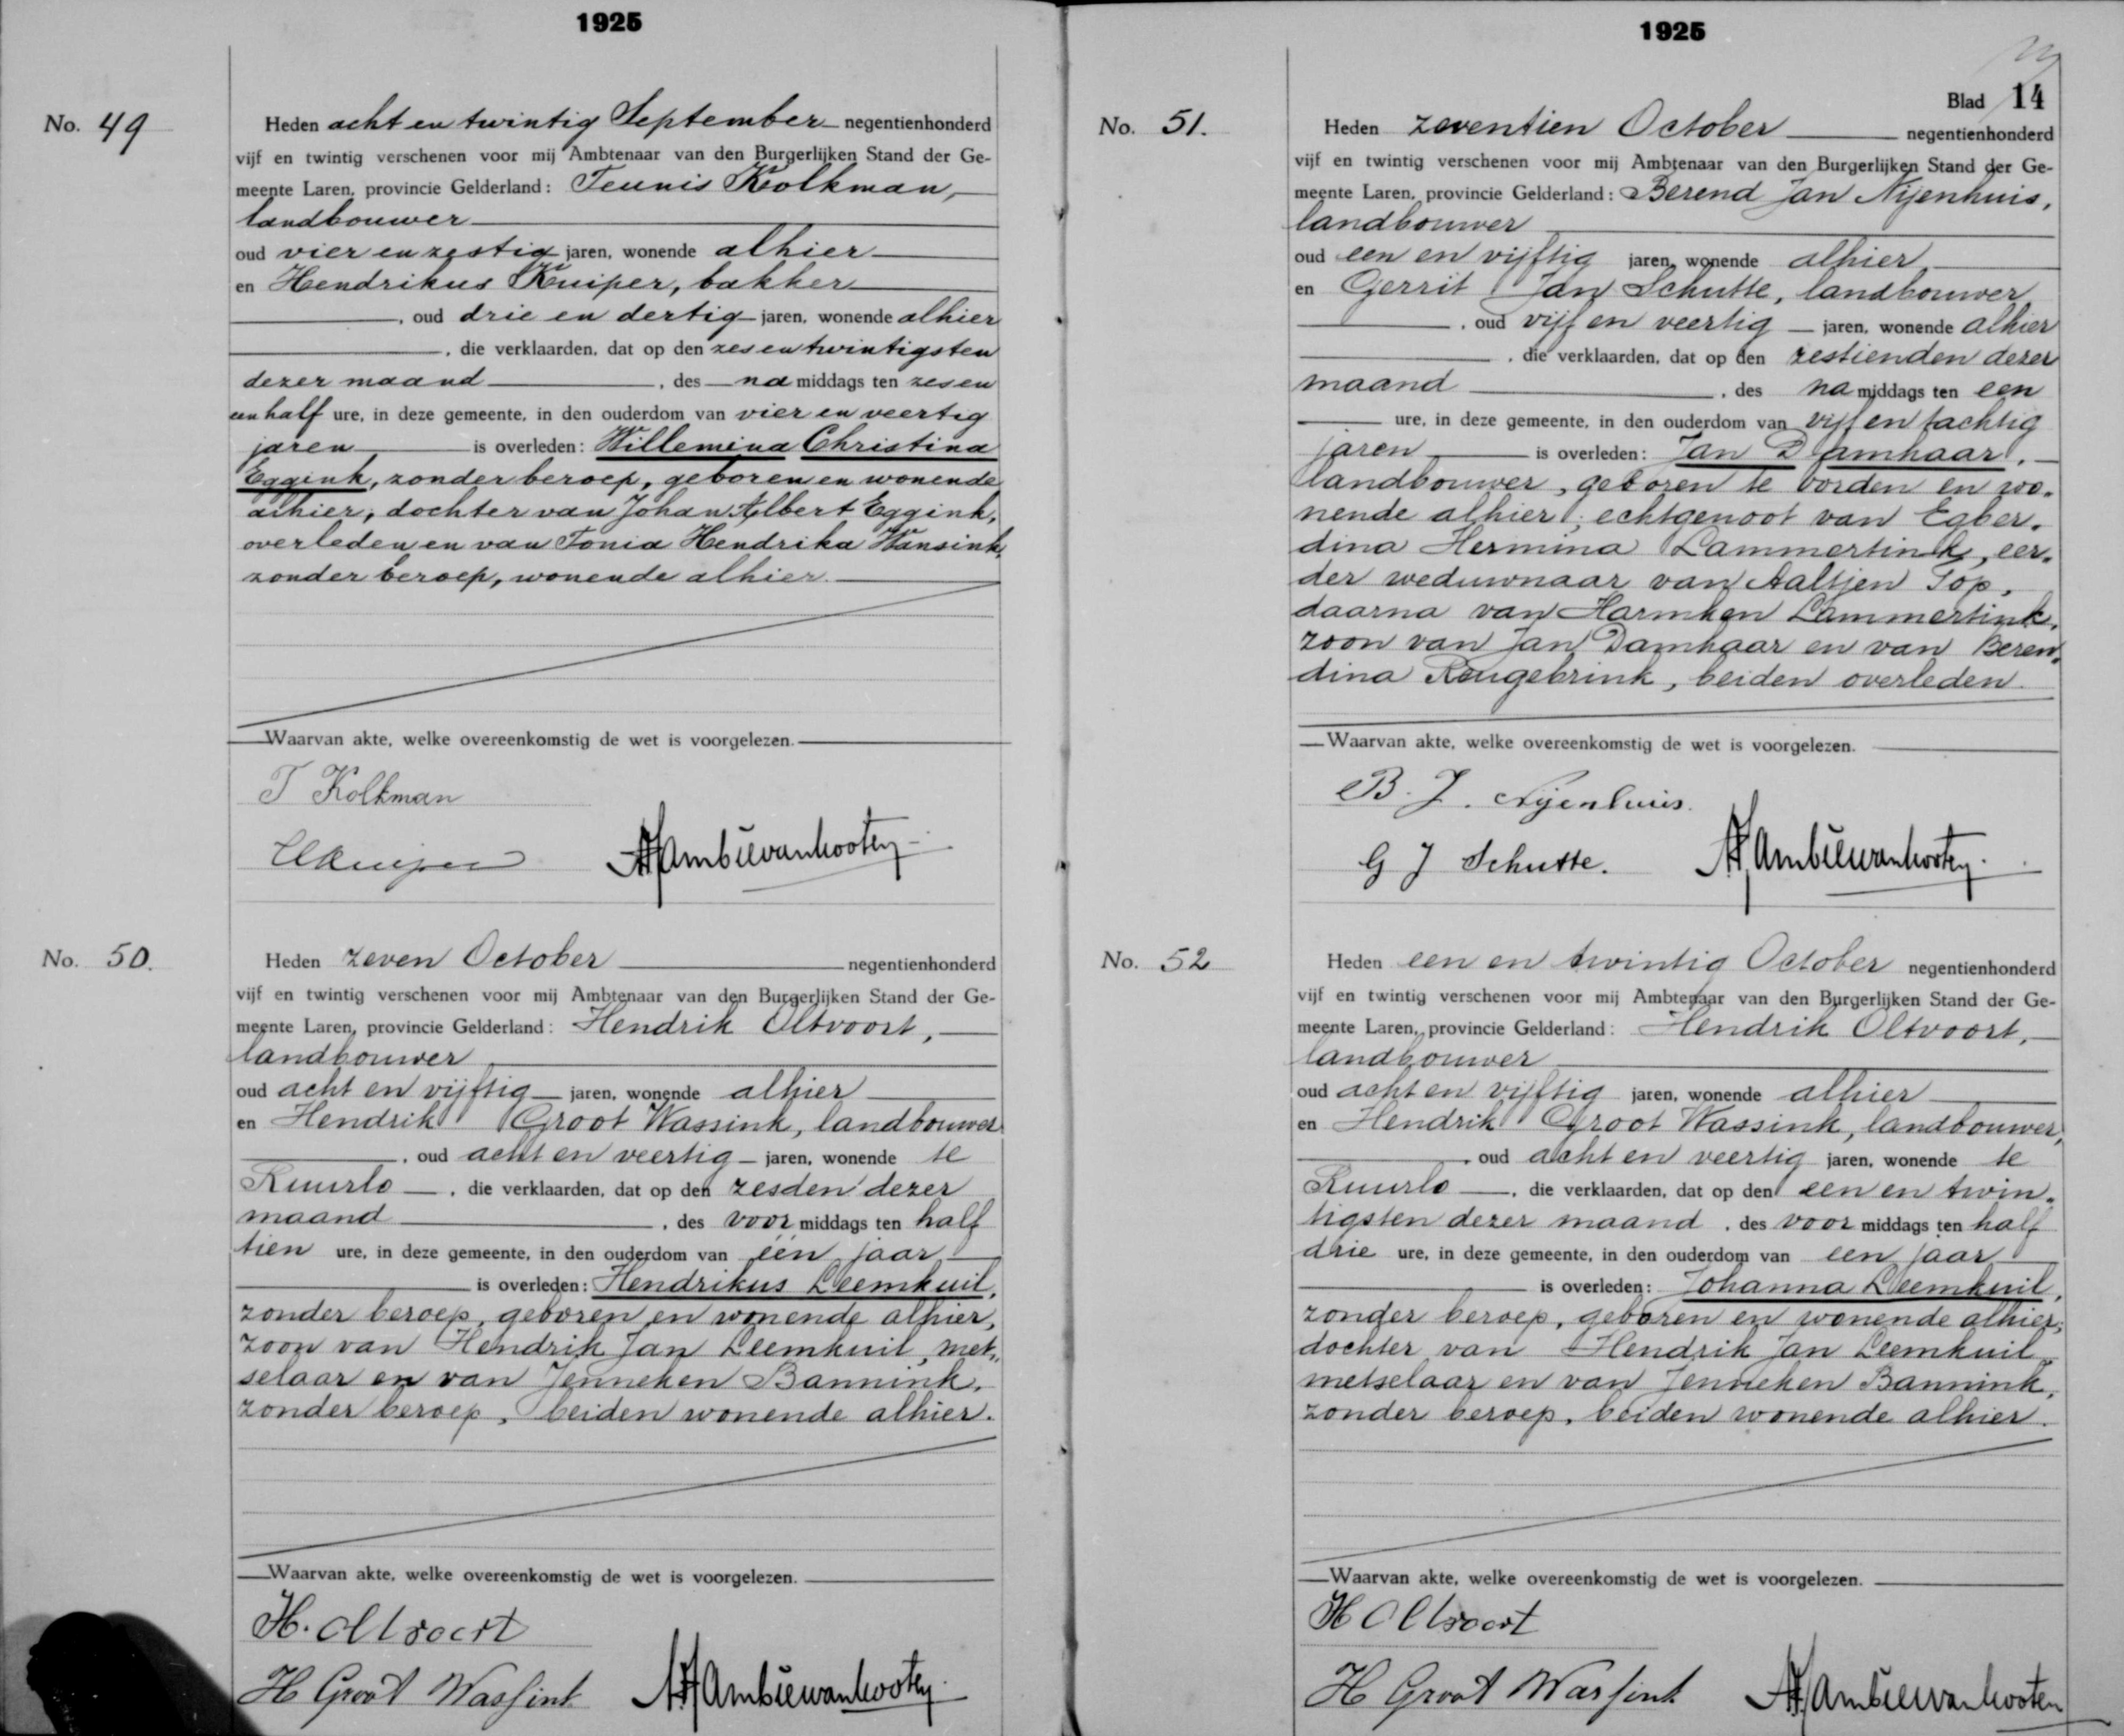 1925
No. 49
Heden acht en twintig September negentienhonderd
vijf en twintig verschenen voor mij Ambtenaar van den Burgerlijken Stand der Ge-
meente Laren, provincie Gelderland: Teunis Kolkman,
landbouwer
oud vier en zestig jaren, wonende alhier
en Hendrikus Kuiper, bakker
, oud drie en dertig jaren, wonende alhier
, die verklaarden, dat op den zes en twintigsten
dezer maand , des na middags ten zes en
een half ure, in deze gemeente, in den ouderdom van vier en veertig
jaren is overleden: Willemina Christina
Eggink, zonder beroep, geboren en wonende
alhier, dochter van Johan Albert Eggink,
overleden en van Tonia Hendrika Wansink,
zonder beroep, wonende alhier.
Waarvan akte, welke overeenkomstig de wet is voorgelezen.
T Kolkman
HKuiper
No. 50.
Heden zeven October negentienhonderd
vijf en twintig verschenen voor mij Ambtenaar van den Burgerlijken Stand der Ge-
meente Laren, provincie Gelderland: Hendrik Oltvoort,
landbouwer
oud acht en vijftig jaren, wonende alhier
en Hendrik Groot Wassink, landbouwer
, oud acht en veertig jaren, wonende te
Ruurlo , die verklaarden, dat op den zesden dezer
maand , des voor middags ten half
tien ure, in deze gemeente, in den ouderdom van één jaar
is overleden: Hendrikus Leemkuil,
zonder beroep, geboren en wonende alhier,
zoon van Hendrik Jan Leemkuil, met„
selaar en van Jenneken Bannink,
zonder beroep, beiden wonende alhier.
Waarvan akte, welke overeenkomstig de wet is voorgelezen.
H. Oltvoort
H Groot Wassink
1925
Blad 14
No. 51.
Heden zeventien October negentienhonderd
vijf en twintig verschenen voor mij Ambtenaar van den Burgerlijken Stand der Ge-
meente Laren, provincie Gelderland: Berend Jan Nijenhuis,
landbouwer
oud een en vijftig jaren, wonende alhier
en Gerrit Jan Schutte, landbouwer
, oud vijf en veertig jaren, wonende alhier
, die verklaarden, dat op den zestienden dezer
maand , des na middags ten een
ure, in deze gemeente, in den ouderdom van vijf en tachtig
jaren is overleden: Jan Damhaar,
landbouwer, geboren te Vorden en wo„
nende alhier, echtgenoot van Egber„
dina Hermina Lammertink, eer„
der weduwnaar van Aaltjen Top,
daarna van Harmken Lammertink,
zoon van Jan Damhaar en van Beren„
dina Reugebrink, beiden overleden.
Waarvan akte, welke overeenkomstig de wet is voorgelezen.
B. J. Nijenhuis.
G J Schutte.
No. 52
Heden een en twintig October negentienhonderd
vijf en twintig verschenen voor mij Ambtenaar van den Burgerlijken Stand der Ge-
meente Laren, provincie Gelderland: Hendrik Oltvoort,
landbouwer
oud acht en vijftig jaren, wonende alhier
en Hendrik Groot Wassink, landbouwer,
, oud acht en veertig jaren, wonende te
Ruurlo , die verklaarden, dat op den een en twin„
tigsten dezer maand , des voor middags ten half
drie ure, in deze gemeente, in den ouderdom van een jaar
is overleden: Johanna Leemkuil,
zonder beroep, geboren en wonende alhier,
dochter van Hendrik Jan Leemkuil
metselaar en van Jenneken Bannink,
zonder beroep, beiden wonende alhier.
Waarvan akte, welke overeenkomstig de wet is voorgelezen.
H Oltvoort
H Groot Wassink